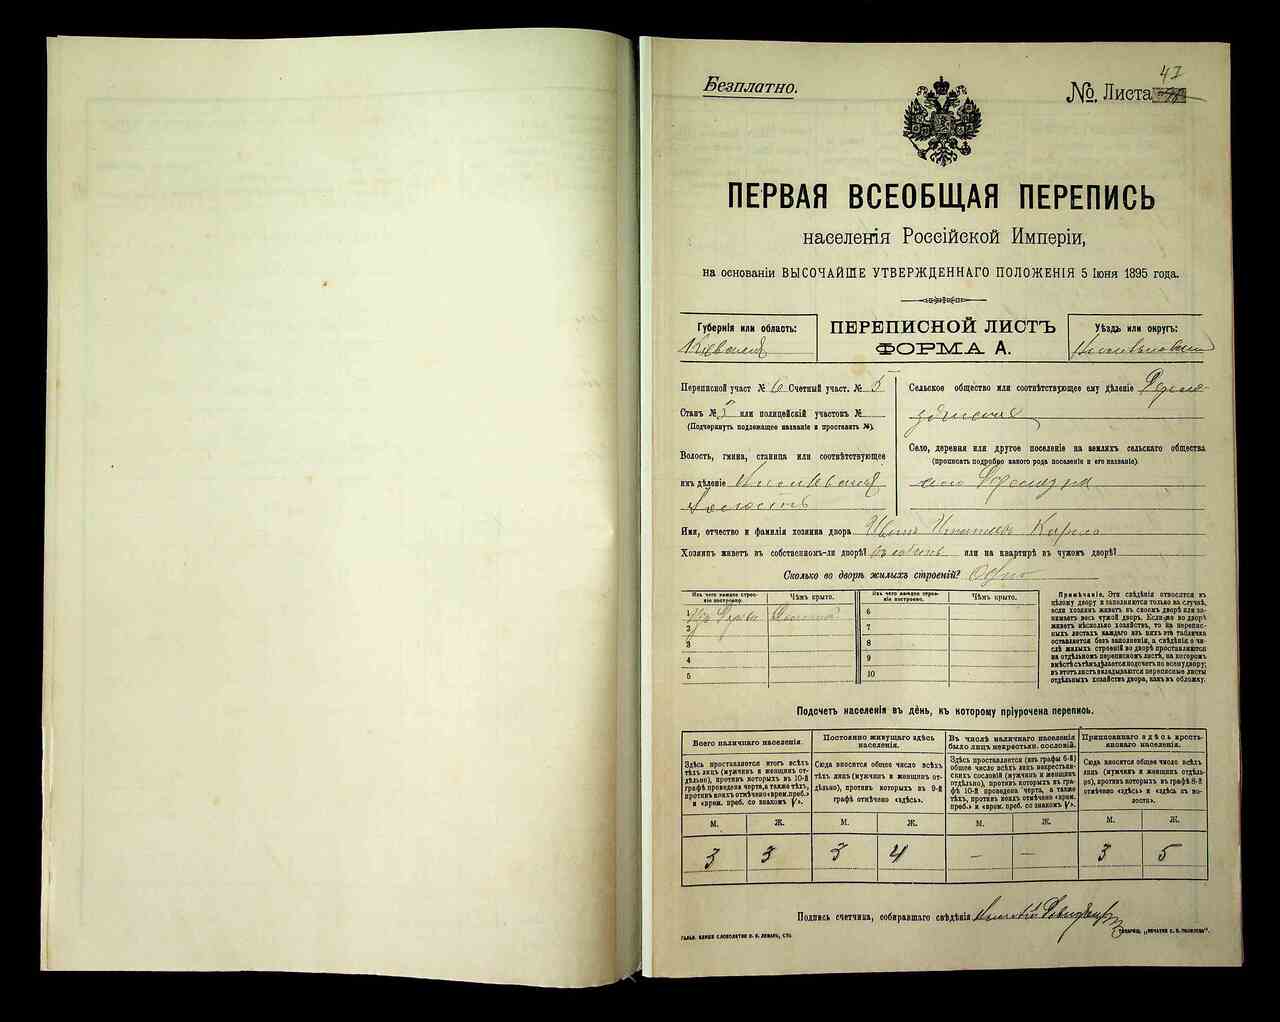 Безплатно.
47
№. Листа
ПЕРВАЯ ВСЕОБЩАЯ ПЕРЕПИСЬ
населенія Россійской Имперіи,
на основаніи ВЫСОЧАЙШЕ УТВЕРЖДЕННАГО ПОЛОЖЕНІЯ 5 Іюня 1895 года.
Губернія или область:
Кіевская
ПЕРЕПИСНОЙ ЛИСТЪ
ФОРМА А.
Уѣздъ или округъ:
Переписной участ № 6 Счетный участ. № 5
Станъ № 5 или полицейскій участокъ №
(Подчеркнуть подлежащее названіе и проставить №).
Волость, гмина, станица или соотвѣтствующее
имъ дѣленіе
волость
Сельское общество или соотвѣтствующее ему дѣленіе
Село, деревня или другое поселеніе на земляхъ сельскаго общества
(прописать подробно какого рода поселеніе и его названіе).
село
Имя, отчество и фамилія хозяина двора Иванъ Игнатьевъ
Хозяинъ живетъ въ собственномъ-ли дворѣ? или на квартирѣ въ чужомъ дворѣ?
Сколько во дворѣ жилыхъ строеній? Одно
Изъ чего каждое строеніе построено.
Чѣмъ крыто.
Изъ чего каждое строеніе построено.
Чѣмъ крыто.
1 Изъ дерева Соломой
2
3
4
5
6
7
8
9
10
Примѣчаніе. Эти свѣдѣнія относятся къ
цѣлому двору и заполняются только на случай,
если хозяинъ живетъ въ своемъ дворѣ или за-
нимаетъ весь чужой дворъ. Если же во дворѣ
живетъ нѣсколько хозяйствъ, то на перепис-
ныхъ листахъ каждаго изъ нихъ эта табличка
оставляется безъ заполненія, а свѣдѣнія о чи-
слѣ жилыхъ строеній во дворѣ проставляются
на отдѣльномъ переписномъ листѣ, на которомъ
вмѣстѣ съ тѣмъ дѣлается подсчетъ по всему двору;
въ этотъ листъ вкладываются переписные листы
отдѣльныхъ хозяйствъ двора, какъ въ обложку.
Подсчетъ населенія въ день, къ которому пріурочена перепись.
Всего наличнаго населенія.
Здѣсь проставляется итогъ всѣхъ
тѣхъ лицъ (мужчинъ и женщинъ от-
дѣльно), противъ которыхъ въ 10-й
графѣ проведена черта, а также тѣхъ,
противъ коихъ отмѣчено «врем. преб.»
и «врем. преб. со знакомъ V».
Постоянно живущаго здѣсь
населенія.
Сюда вносится общее число всѣхъ
тѣхъ лицъ (мужчинъ и женщинъ от-
дѣльно), противъ которыхъ въ 9-й
графѣ отмѣчено «здѣсь».
Въ числѣ наличнаго населенія
было лицъ некрестьян. сословій.
Здѣсь проставляется (изъ графы 6-й)
общее число всѣхъ лицъ некрестьян-
скихъ сословій (мужчинъ и женщинъ
отдѣльно), противъ которыхъ въ гра-
фѣ 10-й проведена черта, а также
тѣхъ, противъ коихъ отмѣчено «врем.
преб.» и «врем. преб. со знакомъ V».
Приписаннаго здѣсь кресть-
янскаго населенія.
Сюда вносится общее число всѣхъ
лицъ (мужчинъ и женщинъ отдѣль-
но), противъ которыхъ въ графѣ 8-й
отмѣчено «здѣсь» и «здѣсь въ во-
лости».
М. Ж. М. Ж. М. Ж. М. Ж.
3 3 3 4 – – 3 5
Подпись счетчика, собиравшаго свѣдѣнія